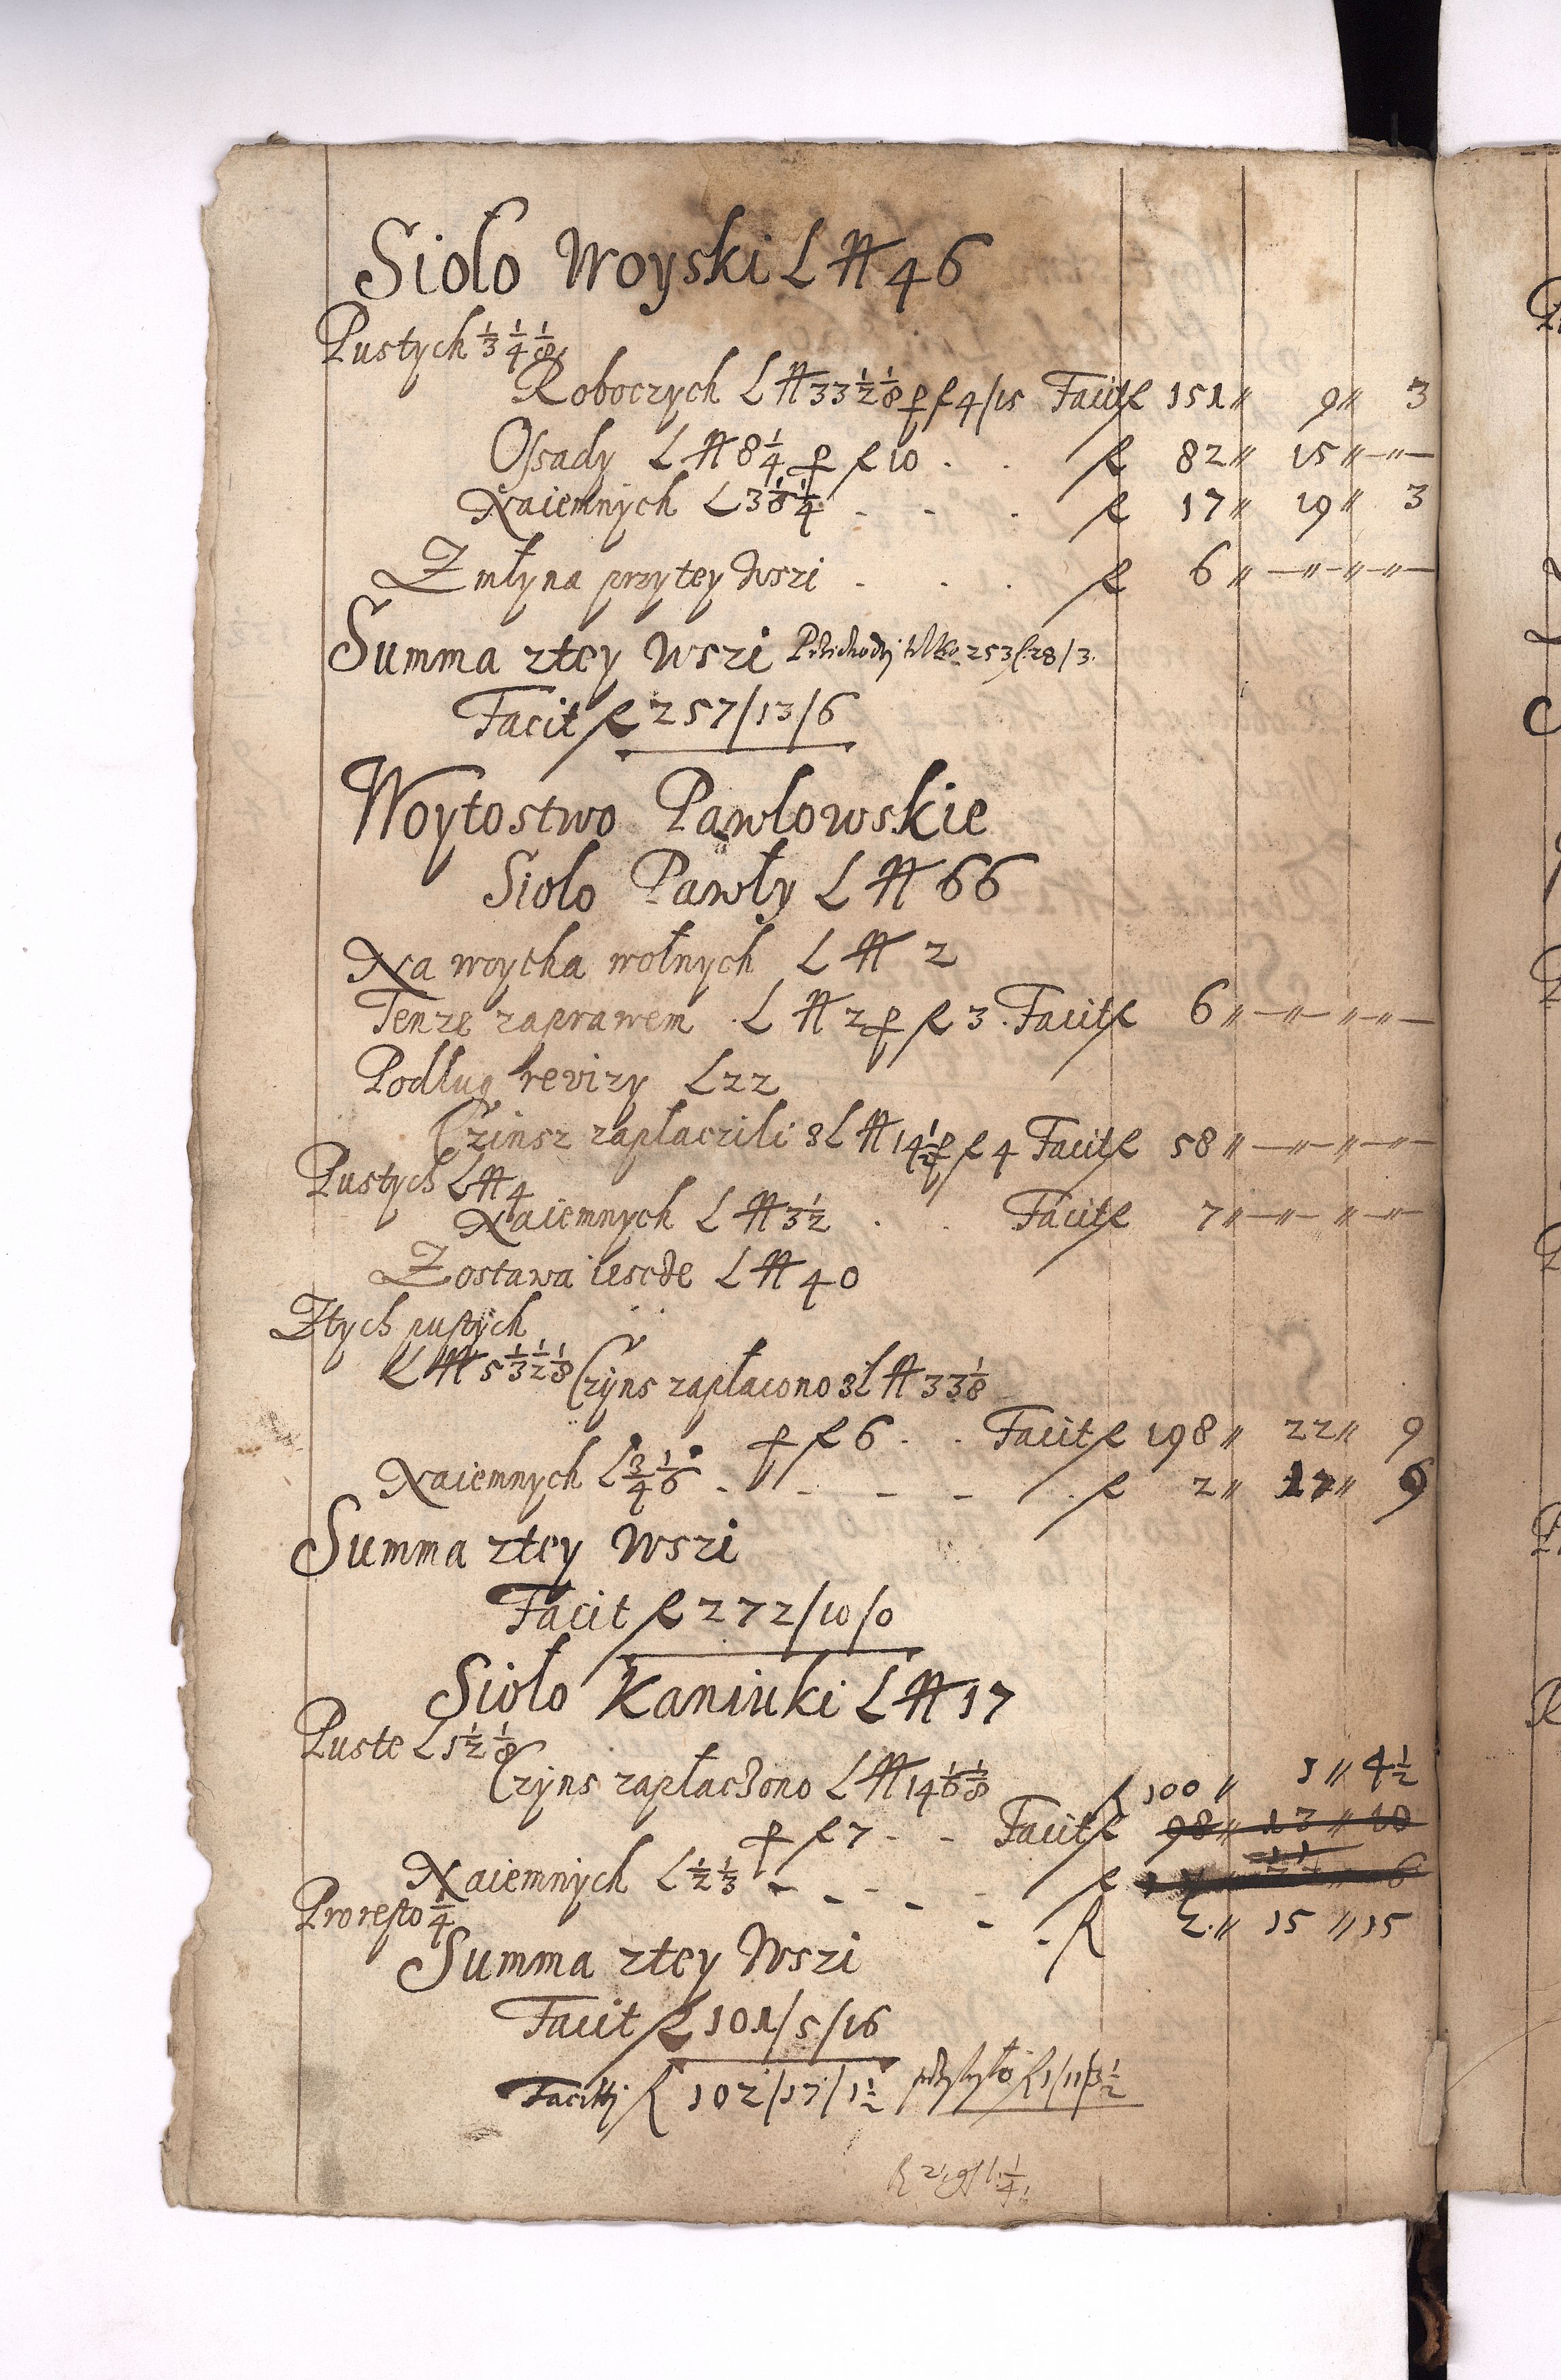 Sioło Woyski L ₶ 46
Pustych 1/3 1/4 1/8
Roboczych L ₶ 33 1/2 1/8 p f 4/15 Facit f 151 " 9 " 3
Ossady L ₶ 8 1/4 p f 10 . . f 82 " 15 " — " —
Naiemnych L 3 1/8 1/4 - - . f 17 " 19 " 3
Z młyna przy tey wszi - . . f 6 " — " — " — " —
Summa z tey wszi 253 f: 28/3.
Facit f 257/13/6
Woytostwo Pawlowskie
Sioło Pawły L ₶ 66
Na woytha wolnych L ₶ 2
Tenze zaprawem L ₶ 2 p f 3. Facit f 6 " — " — " — " —
Podług revizy L 22
Czinsz zaplaczili z L ₶ 14 1/2 p f 4 Facit f 58 " — " — " — " —
Pustych L ₶ 4
Naiemnych L ₶ 3 1/2 . . Facit f 7 " — " — " — " —
Zostawa iescze L ₶ 40
Z tych pustych
L ₶ 5 1/3 1/2 1/8 Czyns zapłacono z L ₶ 33 1/8
p f 6 . . Facit f 198 " 22 " 9
Naiemnych L 3/4 1/6 - - - - . f 2 " 17 " 9
Summa z tey wszi
Facit f 272/10/0
Sioło Kaniuki L ₶ 17
Puste L 1 1/2 1/8
Czyns zaplaczono L ₶ 14 1/6 1/8 f 100 " 1 " 4 1/2
p f 7 - - Facit f 98 " 13 " 10
Naiemnych L 1/2 1/3 - - - - f 6
Pro resto 1/4 - - . f 2 " 15 " 15
Summa z tey wszi
Facit f 101/5/16
f 102/17/1 1/2 f 1/11/3 1/2